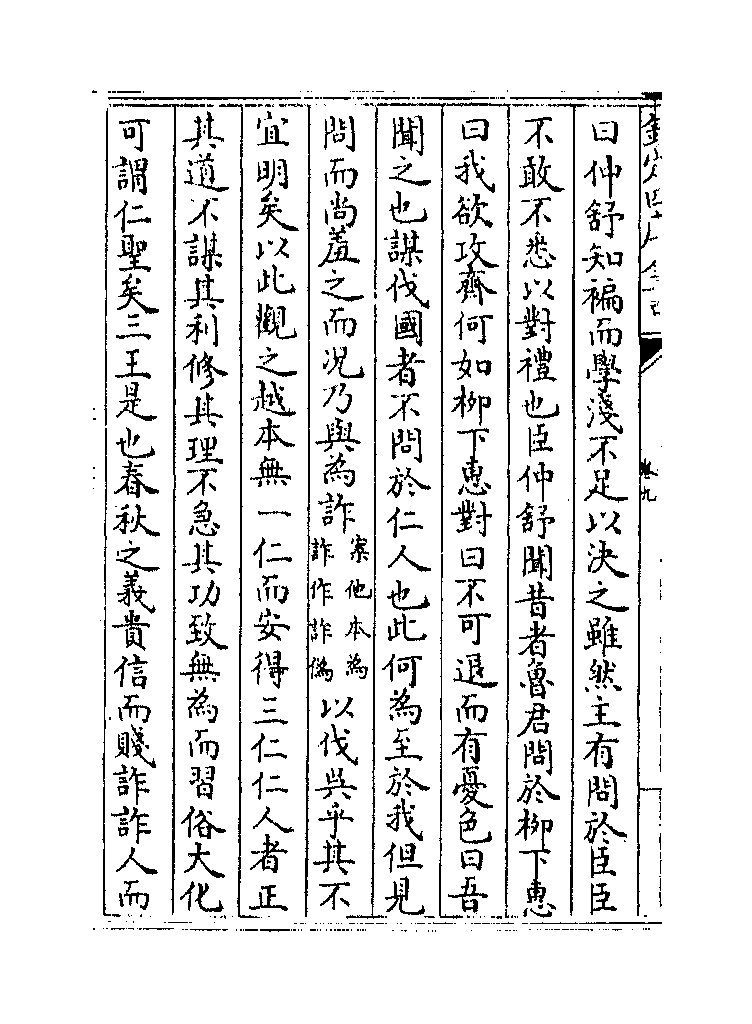 曰仲舒知褊而學淺不足以決之雖然主有問於臣臣
不敢不悉以對禮也臣仲舒聞昔者魯君問於柳下惠
曰我欲攻齊何如柳下惠對曰不可退而有憂色曰吾
聞之也謀伐國者不問於仁人也此何為至於我但見
問而尚羞之而况乃與為詐案他本為詐作詐偽以伐吳乎其不
宜明矣以此觀之越本無一仁而安得三仁仁人者正
其道不謀其利修其理不急其功致無為而習俗大化
可謂仁聖矣三王是也春秋之義貴信而賤詐詐人而
卷九